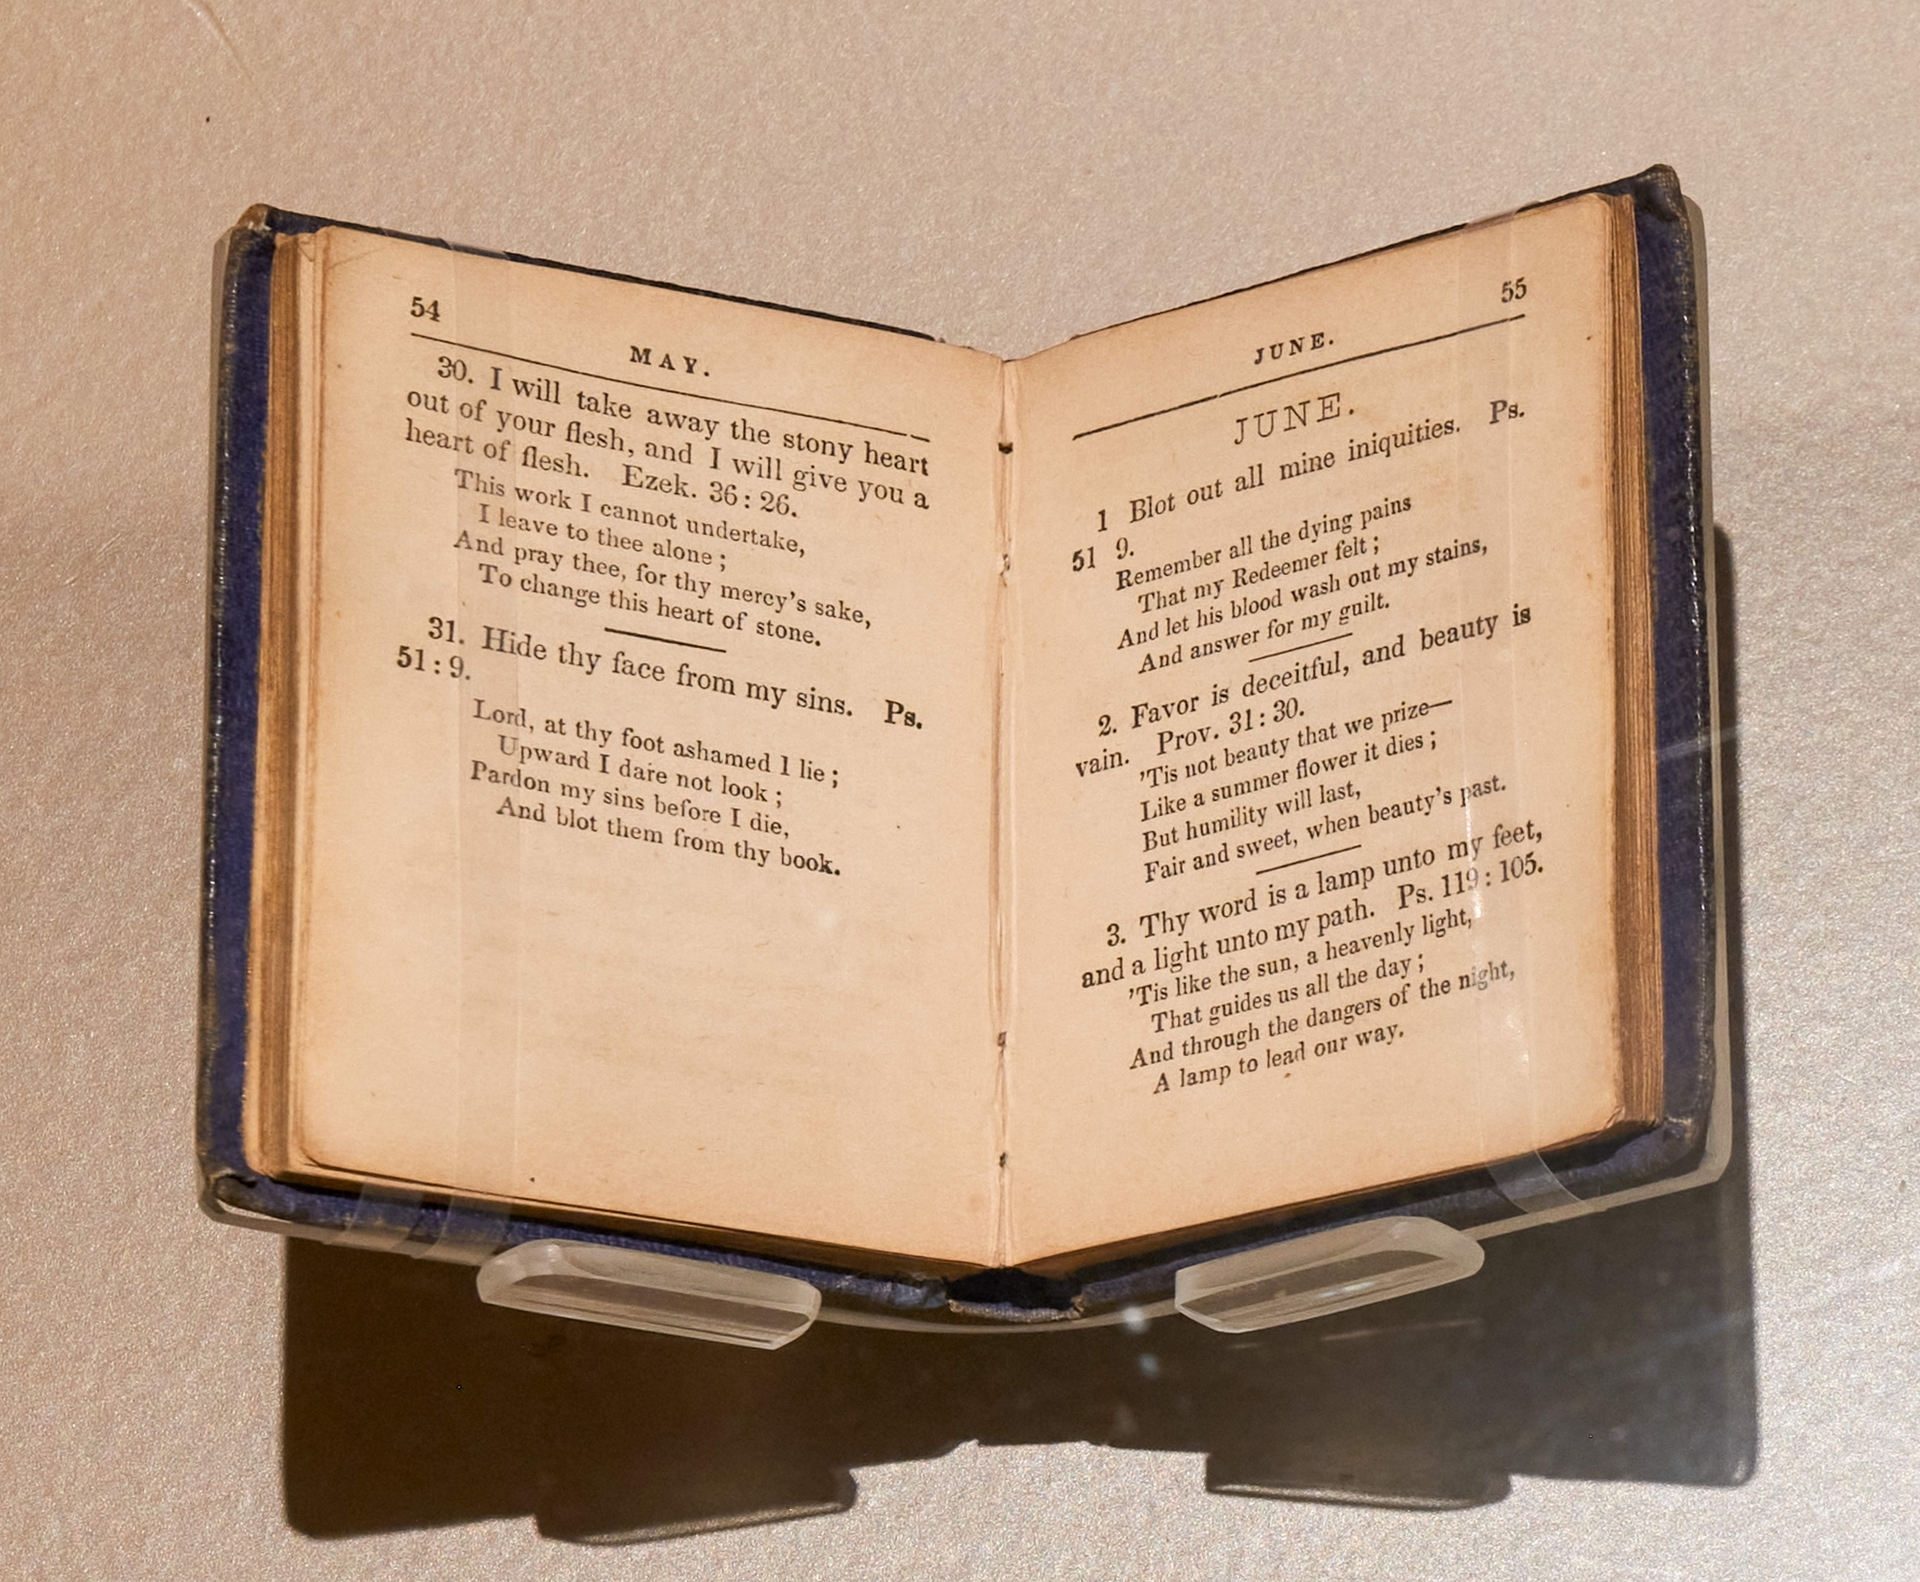 54
MAY.
30. I will take away the stony heart
out of your flesh, and I will give you a
heart of flesh. Ezek. 36 : 26.
This work I cannot undertake,
I leave to thee alone ;
And pray thee, for thy mercy's sake,
To change this heart of stone.
31. Hide thy face from my sins. Ps.
51 : 9.
Lord, at thy foot ashamed I lie ;
Upward I dare not look ;
Pardon my sins before I die,
And blot them from thy book.
55
JUNE.
JUNE.
1 Blot out all mine iniquities. Ps.
51 9.
Remember all the dying pains
That my Redeemer felt ;
And let his blood wash out my stains,
And answer for my guilt.
2. Favor is deceitful, and beauty is
vain. Prov. 31 : 30.
'Tis not beauty that we prize—
Like a summer flower it dies ;
But humility will last,
Fair and sweet, when beauty's past.
3. Thy word is a lamp unto my feet,
and a light unto my path. Ps. 119 : 105.
'Tis like the sun, a heavenly light,
That guides us all the day ;
And through the dangers of the night,
A lamp to lead our way.